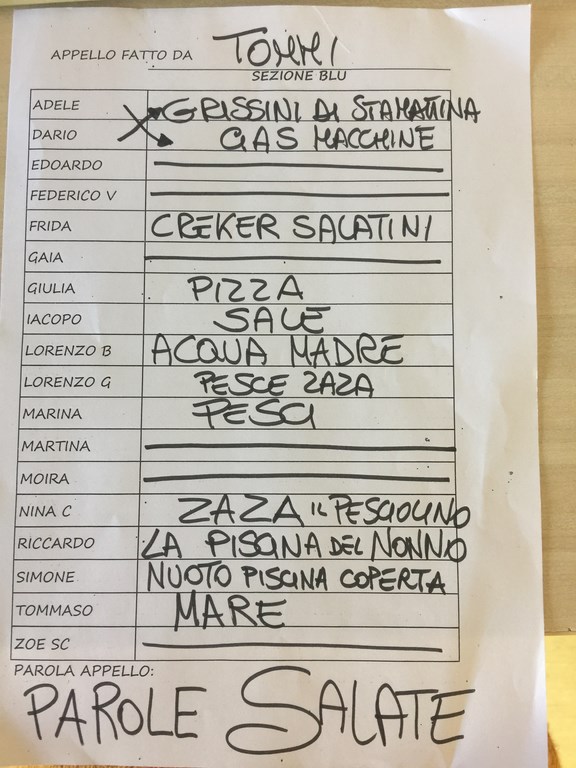 APPELLO FATTO DA TOMMI
SEZIONE BLU
ADELE GRISSINI DI STAMATTINA
DARIO GAS MACCHINE
EDOARDO
FEDERICO V
FRIDA CREKER SALATINI
GAIA
GIULIA PIZZA
IACOPO SALE
LORENZO B ACQUA MADRE
LORENZO G PESCE ZAZA
MARINA PESCI
MARTINA
MOIRA
NINA C ZAZA IL PESCIOLINO
RICCARDO LA PISCINA DEL NONNO
SIMONE NUOTO PISCINA COPERTA
TOMMASO MARE
ZOE SC
PAROLA APPELLO:
PAROLE SALATE